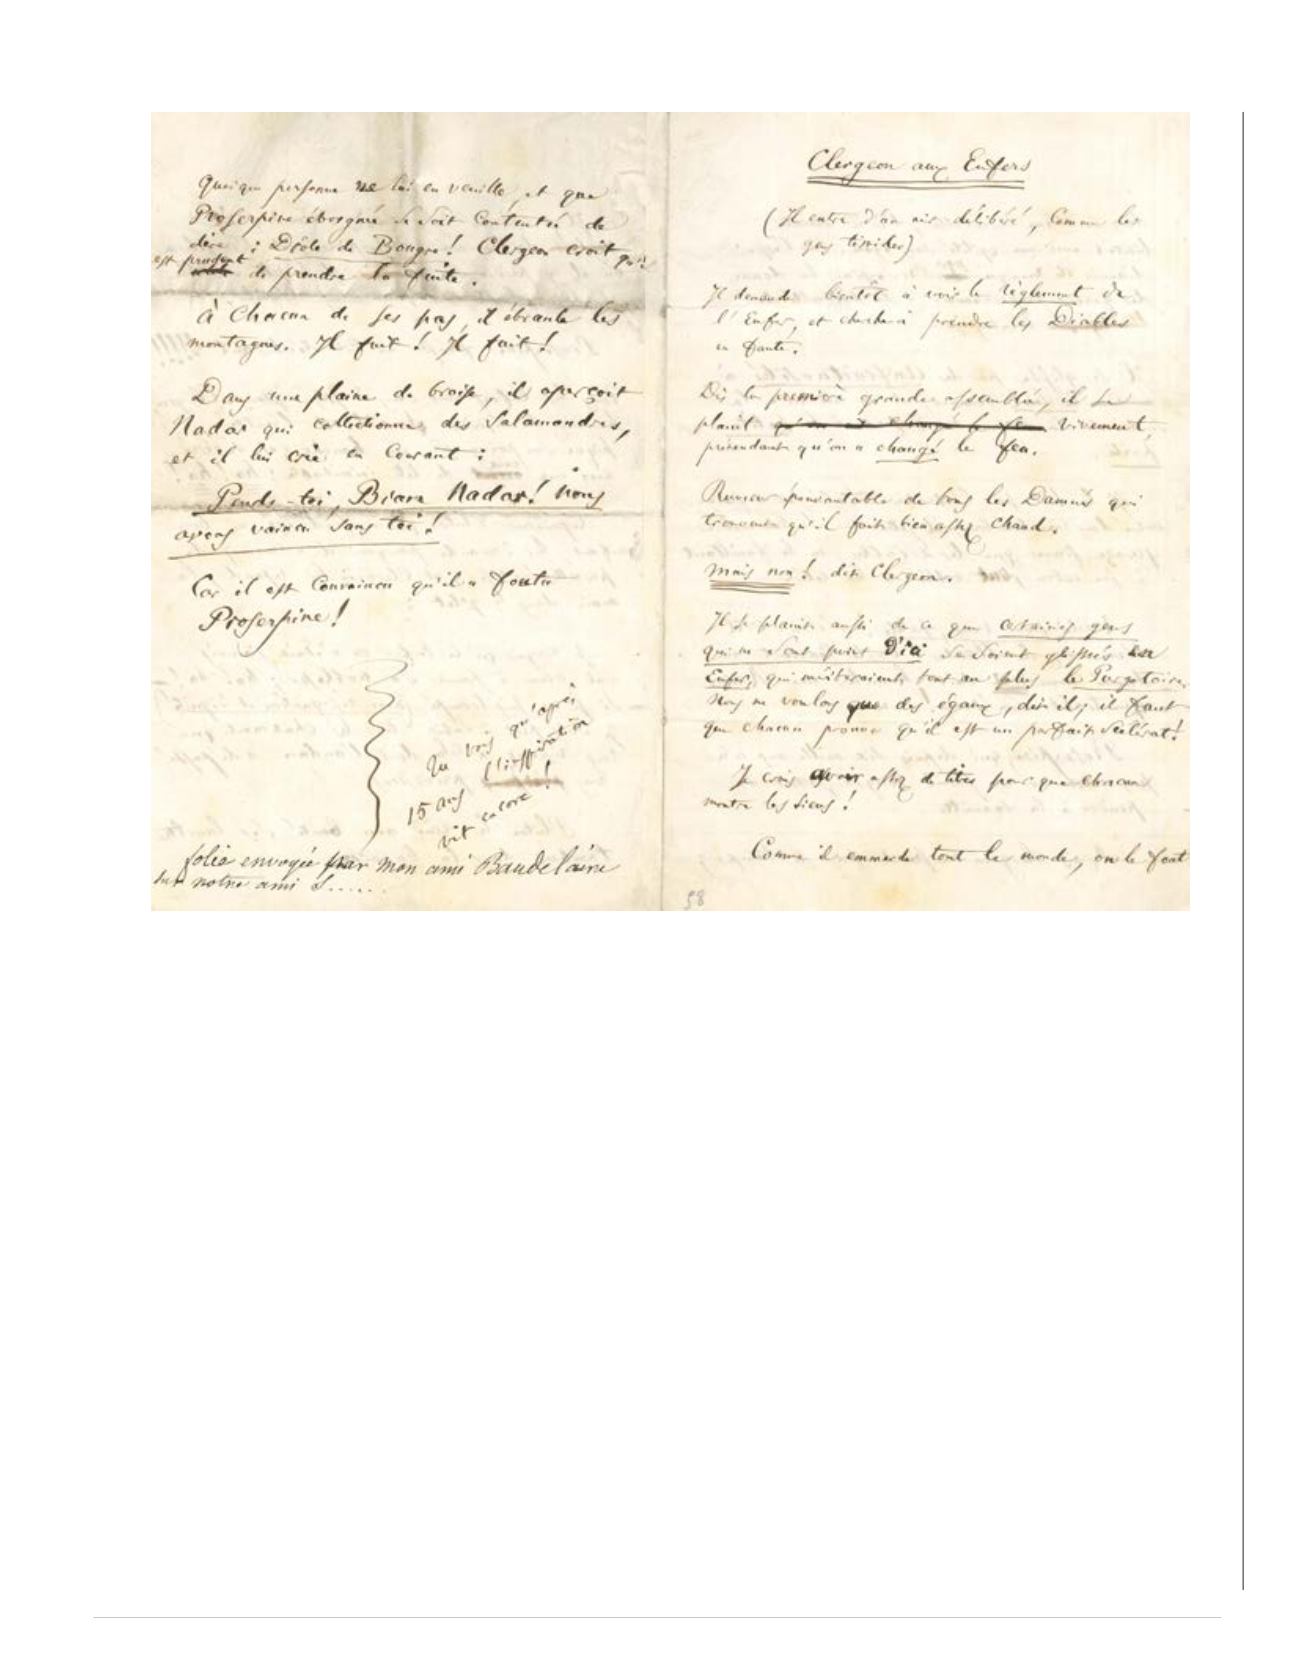 Clergeon aux Enfers
(Il entre d'un air délibéré, comme les
gens timides)
Il demande bientôt à voir le règlement de
l'Enfer, et cherche à prendre les Diables
en faute.
Dès la première grande assemblée, il se
plaint qu'on ait changé le feu vivement,
prétendant qu'on a changé le feu.
Rumeur épouvantable de tous les Damnés qui
trouvent qu'il fait bien assez chaud.
Mais non! dit Clergeon.
Il se plaint aussi de ce que certaines gens
qui ne sont point d'ici se soient glissés en
Enfer, qui mériteraient tout au plus le Purgatoire.
Nous ne voulons que des égaux, dit-il, il faut
que chacun prouve qu'il est un parfait scélérat!
Je crois avoir assez de titres pour que chacun
montre les siens!
Comme il emmerde tout le monde, on le fout
58
Quoique personne ne lui en veuille, et que
Proserpine éborgnée se soit contentée de
dire : Drôle de Bougre! Clergeon croit qu'il
est prudent
de prendre la fuite.
À chacun de ses pas, il ébranle les
montagnes. Il fuit! Il fuit!
Dans une plaine de braise, il aperçoit
Nadar qui collectionne des Salamandres,
et il lui crie en courant :
Pends-toi, Nadar! nous
avons vaincu sans toi!
Car il est convaincu qu'il a foutu
Proserpine!
Tu vois qu'après
15 ans
vit encore!
folie envoyée par mon ami Baudelaire
sur notre ami S.....